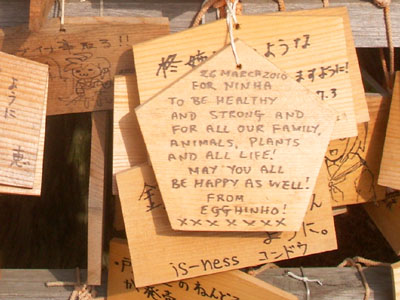 26 MARCH 2010
FOR NINHA
TO BE HEALTHY
AND STRONG AND
FOR ALL OUR FAMILY,
ANIMALS, PLANTS
AND ALL LIFE!
MAY YOU ALL
BE HAPPY AS WELL!
FROM
EGGHINHO!
xxxxxxx
ような
ますように!
7.3
ように
恵
ように。
is-ness コンドウ